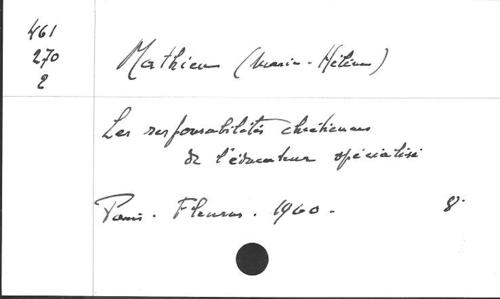 461
270
2
Mathieu (Marie-Hélène)
Les responsabilités chrétiennes
de l'éducateur spécialisé
Paris. Fleurus. 1960.
8°